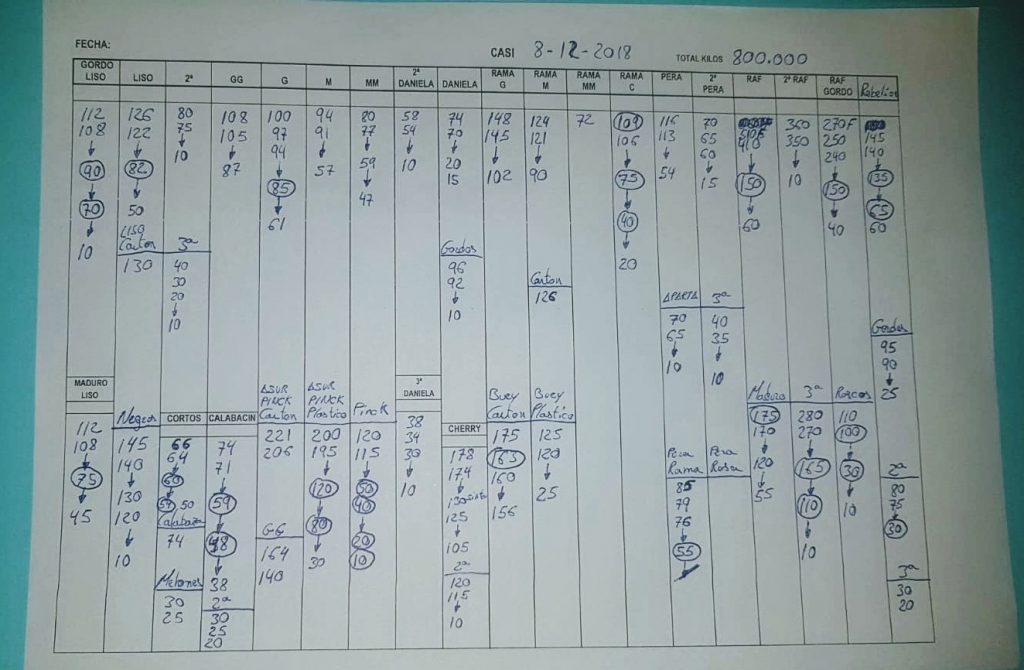 FECHA:
CASI 8-12-2018 TOTAL KILOS 800.000
GORDO LISO LISO 2ª GG G M MM 2ª DANIELA DANIELA RAMA G RAMA M RAMA MM RAMA C PERA 2ª PERA RAF 2ª RAF RAF GORDO Rebelios
112 126 80 108 100 94 80 58 74 148 124 72 109 116 70 360 270F
108 122 75 105 97 91 77 54 70 145 121 106 113 65 410 350 250 145
90 82 10 87 94 57 59 10 20 102 90 75 54 60 150 10 240 140
70 50 85 47 15 40 15 60 150 135
10 61 20 40 65
60
LISO Carton 3ª Gordos Carton
130 40 96 126
30 92
20 10
10
APARTA 3ª
70 40
65 35
10 10
Gordos
95
90
25
MADURO LISO Negros CORTOS CALABACIN ASUR PINCK Carton ASUR PINCK Plastico Pinck 3ª DANIELA CHERRY Buey Carton Buey Plastico Maduro 3ª Roscos
112 145 66 74 221 200 120 38 178 175 125 175 280 110
108 140 64 71 206 195 115 34 174 163 120 170 270 100
75 130 60 59 120 50 30 130 160 25 120 165 30
45 120 54 50 48 80 40 10 125 156 55 110 10
10 38 30 20 105 10
10
Calabaza
74
Melones
30
25
2ª
30
25
20
GG
164
140
2ª
120
115
10
Pera Rama Pera Rosa
85
79
76
55
2ª
80
75
30
3ª
30
20